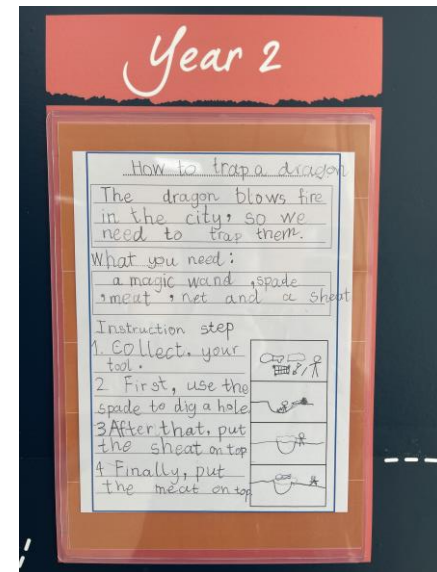 Year 2
How to trap a dragon
The dragon blows fire
in the city, so we
need to trap them.
What you need:
a magic wand ,spade
,meat ,net and a sheat
Instruction step
1. Collect. your
tool.
2 First, use the
spade to dig a hole
3 After that, put
the sheat on top
4 Finally, put
the meat on top